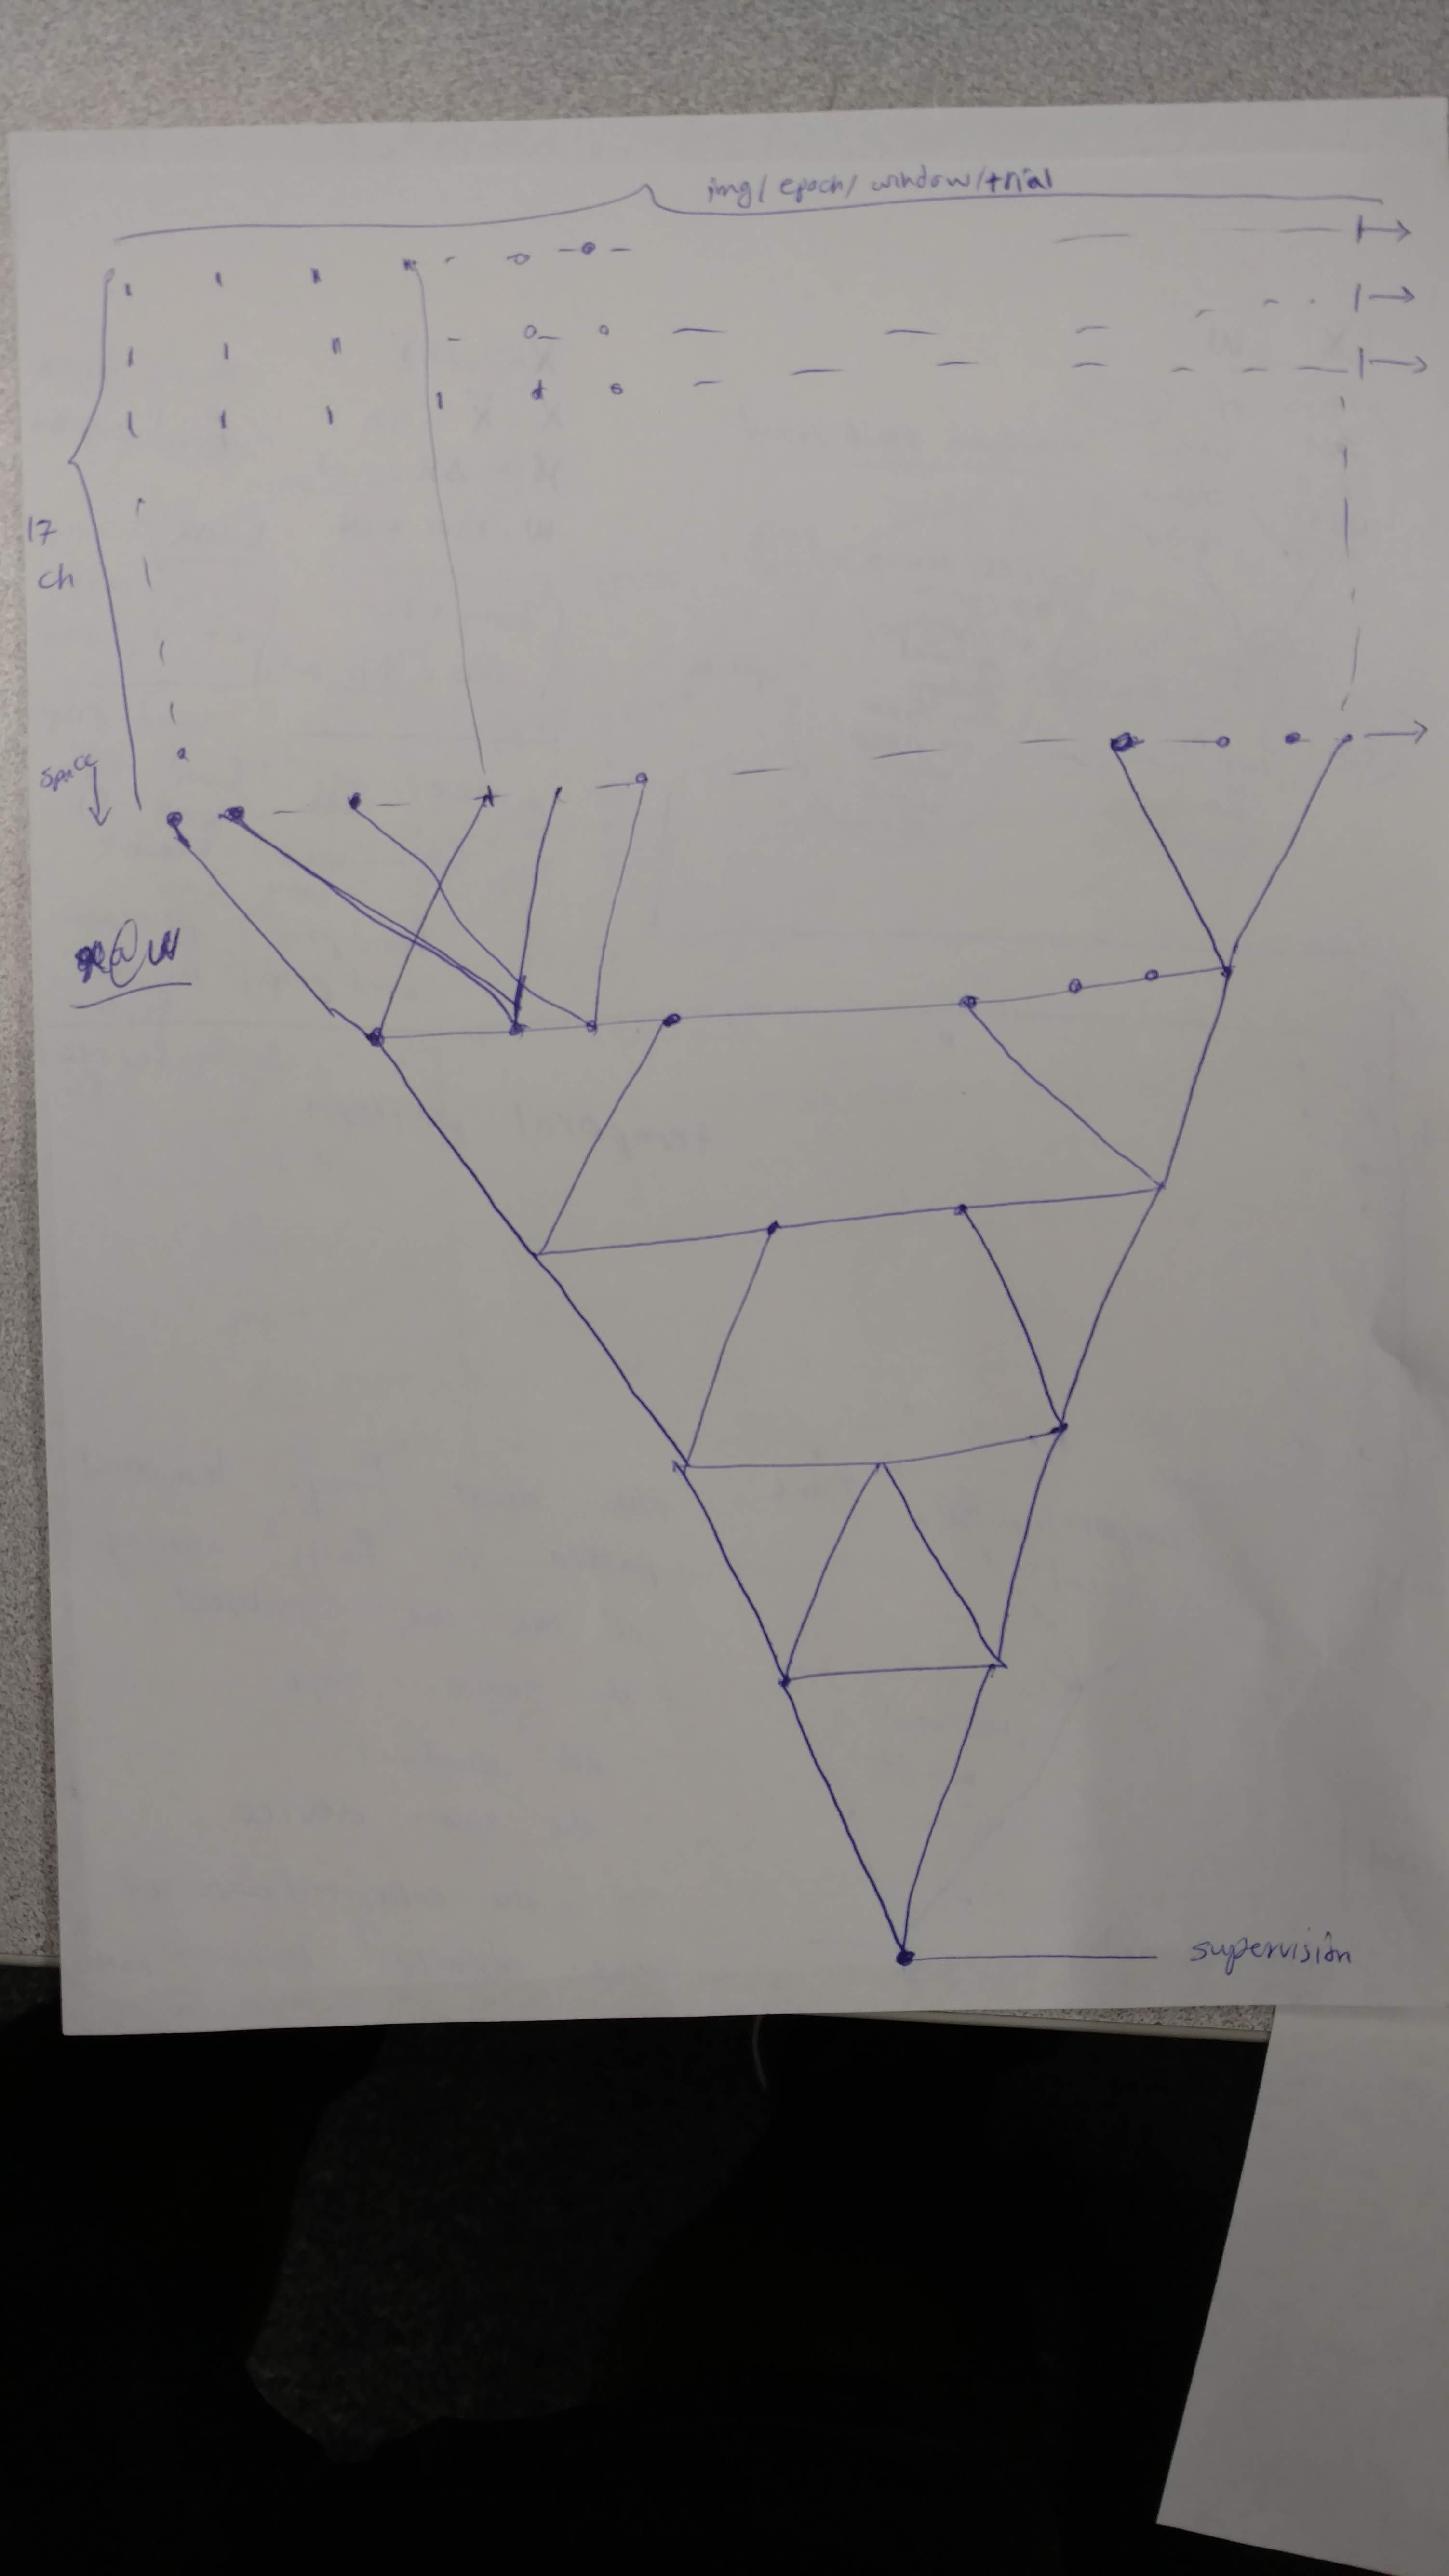 img/ epoch/ window/trial
17
ch
space
x@W
supervision